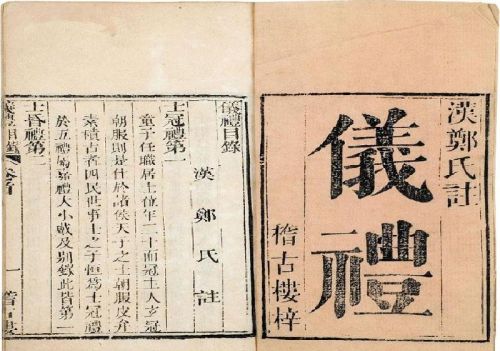 漢鄭氏註
儀禮
稽古樓梓
儀禮目錄
漢鄭氏註
士冠禮第一
童子任職居士位年二十而冠主人玄冠
朝服則是仕於諸侯天子之士朝服皮弁
素積古者四民世事士之子恒為士冠禮
於五禮屬嘉禮大小戴及別錄此皆第一
士昏禮第二
儀禮目錄 卷首 一 稽古樓